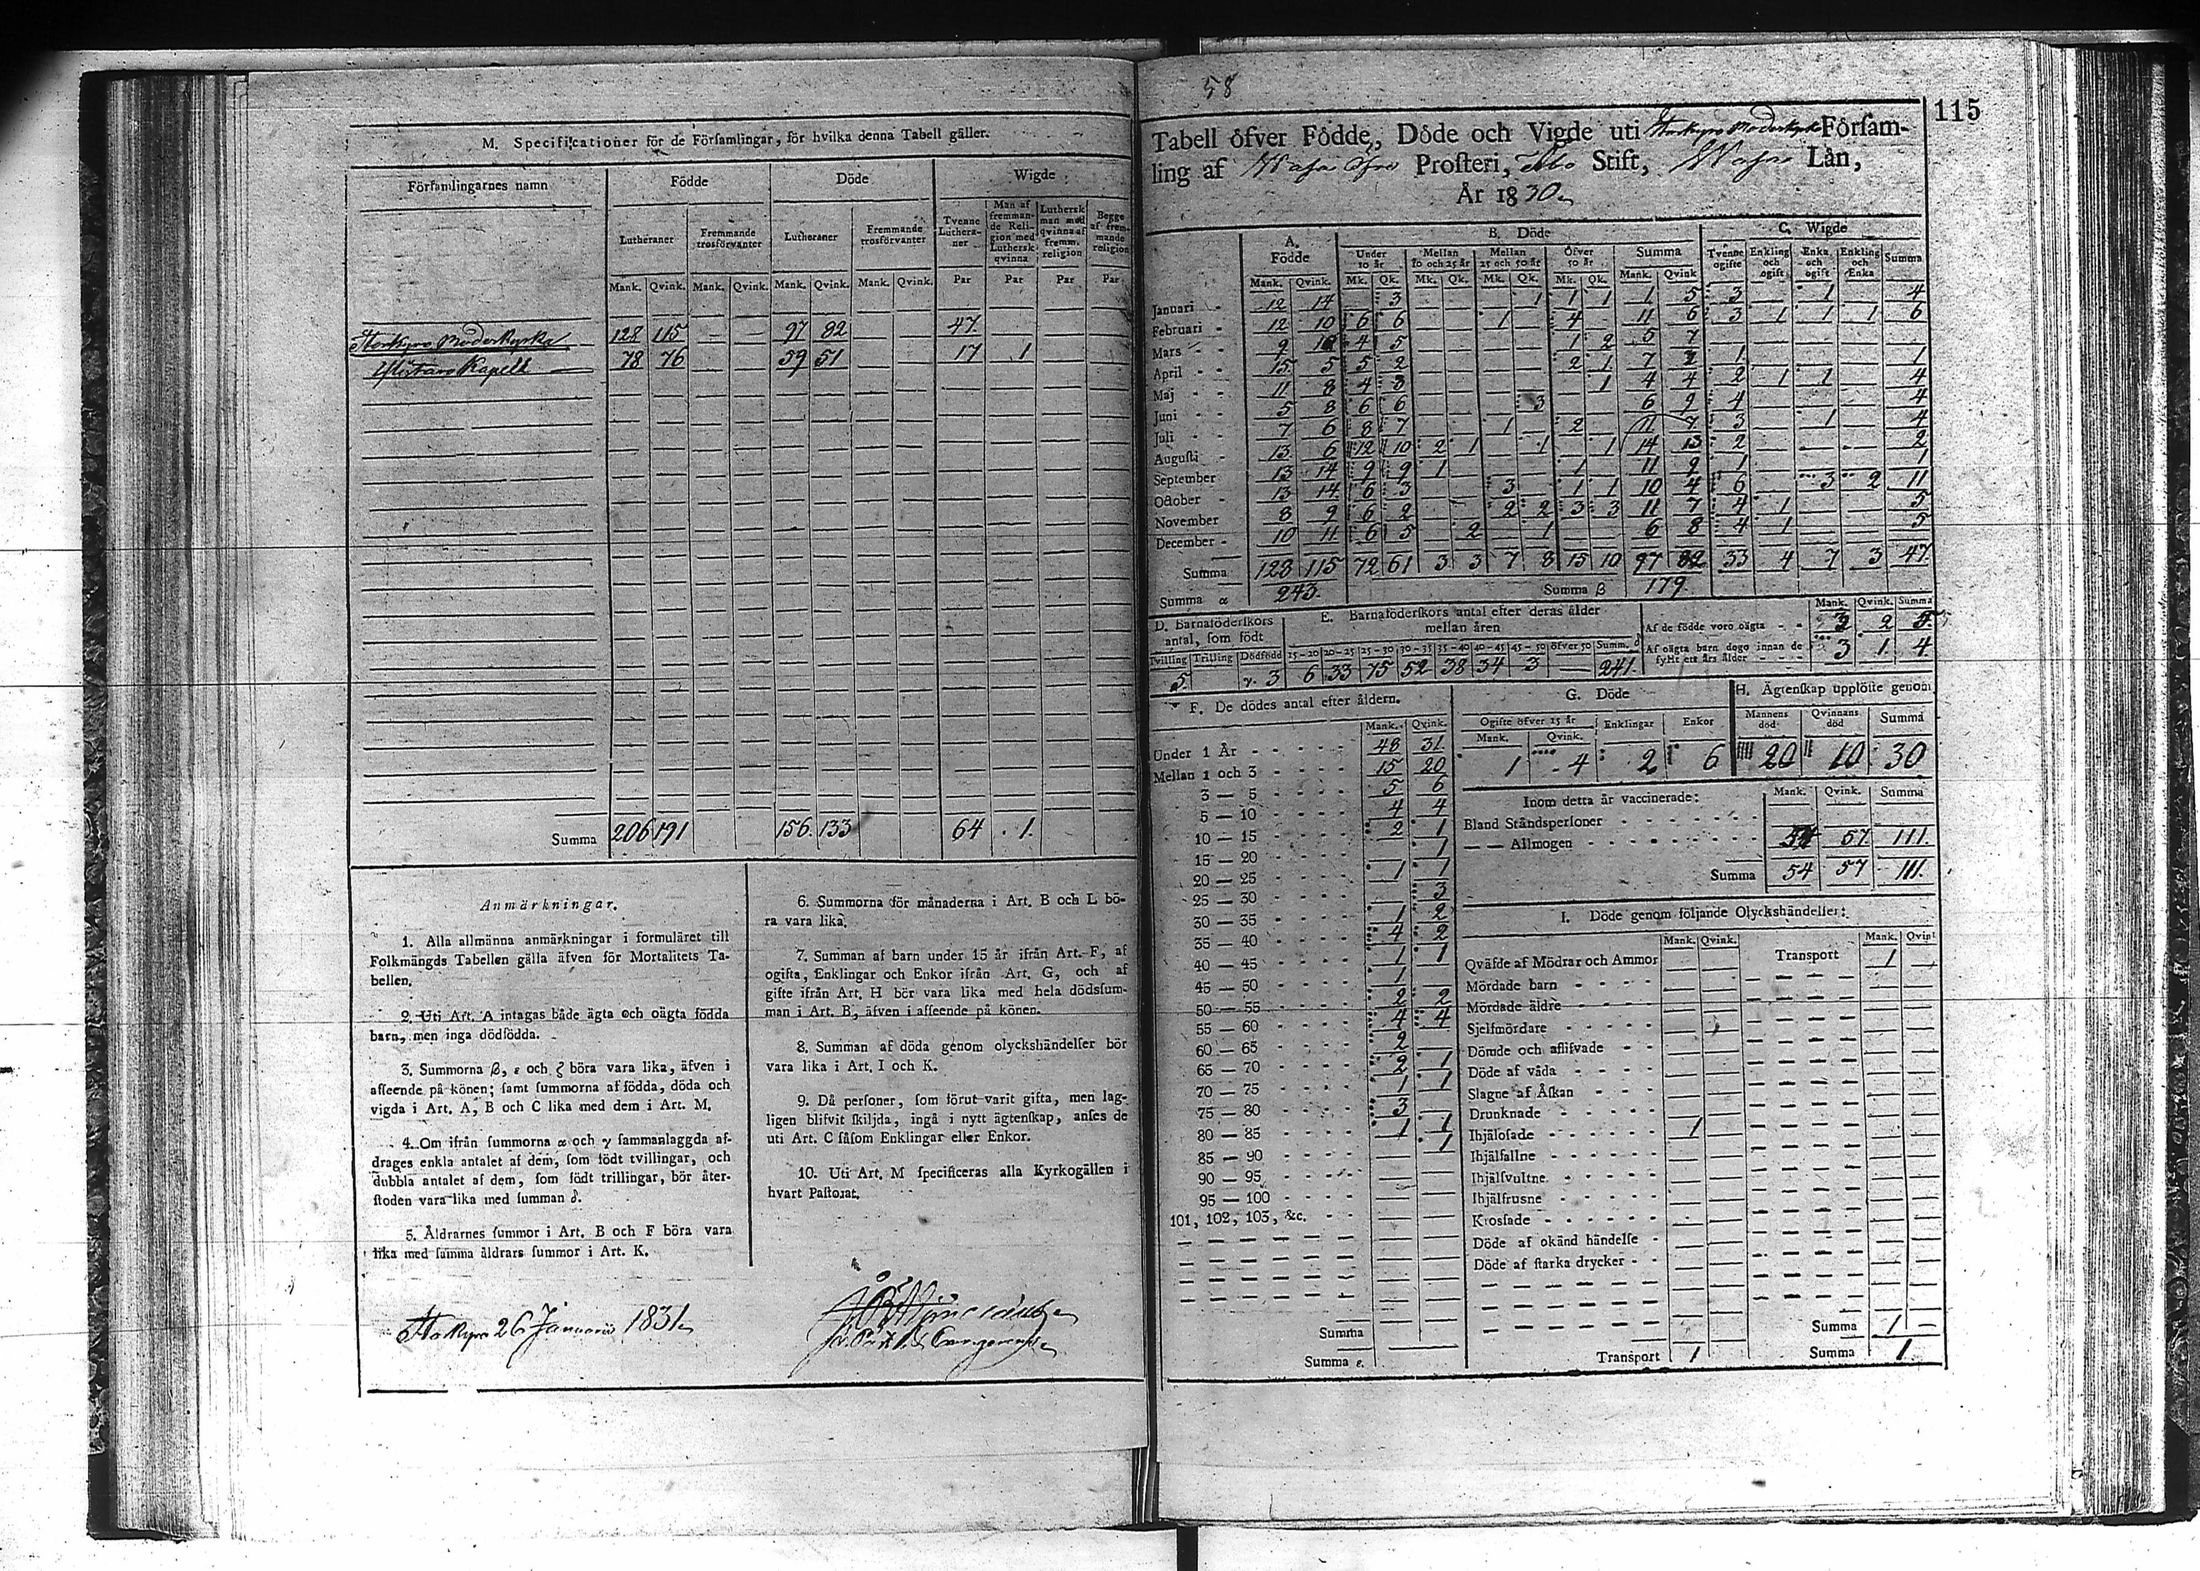 M. Specificationer för de Församlingar, för hvilka denna Tabell gäller.
Församlingarnes namn | Födde | Döde | Wigde
Lutheraner | Fremmande trosförvanter | Lutheraner | Fremmande trosförvanter | Tvenne Lutheraner | Man af fremmande Religion med Luthersk qvinna | Luthersk man med qvinna af fremm. religion | Begge af fremmande religion
Mank. Qvink. Mank. Qvink. Mank. Qvink. Mank. Qvink. Par Par Par Par
Storkyro Moderkyrka 128 115 — — 97 82 — — 47
Kapell 78 76 — — 59 51 — — 17 1
Summa 206 191 156 133 64 1
Anmärkningar.
1. Alla allmänna anmärkningar i formuläret till
Folkmängds Tabellen gälla äfven för Mortalitets Ta-
bellen.
2. Uti Art. A intagas både ägta och oägta födda
barn, men inga dödfödda.
3. Summorna β, ε och ζ böra vara lika, äfven i
afseende på könen; samt summorna af födda, döda och
vigda i Art. A, B och C lika med dem i Art. M.
4. Om ifrån summorna α och γ sammanlaggda af-
drages enkla antalet af dem, som födt tvillingar, och
dubbla antalet af dem, som födt trillingar, bör åter-
stoden vara lika med summan δ.
5. Åldrarnes summor i Art. B och F böra vara
lika med samma åldrars summor i Art. K.
6. Summorna för månaderna i Art. B och L bö-
ra vara lika.
7. Summan af barn under 15 år ifrån Art. F, af
ogifta, Enklingar och Enkor ifrån Art. G, och af
gifte ifrån Art. H bör vara lika med hela dödssum-
man i Art. B, äfven i afseende på könen.
8. Summan af döda genom olyckshändelser bör
vara lika i Art. I och K.
9. Då personer, som förut varit gifta, men lag-
ligen blifvit skiljda, ingå i nytt ägtenskap, anses de
uti Art. C såsom Enklingar eller Enkor.
10. Uti Art. M specificeras alla Kyrkogällen i
hvart Pastorat.
Storkyro 26 Januarii 1831
58
115
Tabell öfver Födde, Döde och Vigde uti Storkyro Moderkyrko Försam-
ling af Wasa Prosteri, Åbo Stift, Wasa Län,
År 1830
A. Födde | B. Döde | C. Wigde
Under 10 år | Mellan 10 och 25 år | Mellan 25 och 50 år | Öfver 50 år | Summa | Tvenne ogifte | Enkling och ogift | Enka och ogift | Enkling och Enka | Summa
Mank. Qvink. Mk. Qk. Mk. Qk. Mk. Qk. Mk. Qk. Mank. Qvink
Januari 12 14 — 3 — — — 1 1 1 1 5 3 — 1 — 4
Februari 12 10 6 6 — — 1 — 4 — 11 6 3 1 1 1 6
Mars 9 10 4 5 — — — — 1 2 5 7 — — — — —
April 15 5 5 2 — — — — 2 1 7 3 1 — — — 1
Maj 11 8 4 3 — — — — — 1 4 4 2 1 1 — 4
Juni 5 8 6 6 — — — 3 — — 6 9 4 — — — 4
Juli 7 6 8 7 — — 1 — 2 — 11 7 3 — 1 — 4
Augusti 13 6 12 10 2 1 — 1 — 1 14 13 2 — — — 2
September 13 14 9 9 1 — — — 1 — 11 9 1 — — — 1
October 13 14 6 3 — — 3 — 1 1 10 4 6 — 3 2 11
November 8 9 6 2 — — 2 2 3 3 11 7 4 1 — — 5
December 10 11 6 5 — 2 — 1 — — 6 8 4 1 — — 5
Summa 128 115 72 61 3 3 7 8 15 10 97 82 33 4 7 3 47
Summa α 243. Summa β 179.
D. Barnaföderskors antal, som födt
Tvilling Trilling Dödfödd
5 γ. 3
E. Barnaföderskors antal efter deras ålder mellan åren
15-20 20-25 25-30 30-35 35-40 40-45 45-50 öfver 50 Summ. δ
6 33 75 52 38 34 3 — 241.
Mank. Qvink. Summa
Af de födde voro oägta 3 2 5
Af oägta barn dogo innan de fyllt ett års ålder 3 1 4
F. De dödes antal efter åldern.
Mank. Qvink.
Under 1 År 48 31
Mellan 1 och 3 15 20
3 — 5 5 6
5 — 10 4 4
10 — 15 2 1
15 — 20 — 1
20 — 25 1 1
25 — 30 — 3
30 — 35 1 2
35 — 40 4 2
40 — 45 1 1
45 — 50 1 —
50 — 55 2 2
55 — 60 4 4
60 — 65 2 —
65 — 70 2 1
70 — 75 1 1
75 — 80 3 —
80 — 85 1 1
85 — 90 — 1
90 — 95
95 — 100
101, 102, 103, &c.
Summa
Summa ε.
G. Döde
Ogifte öfver 15 år Enklingar Enkor
Mank. Qvink.
1 4 2 6
H. Ägtenskap upplöste genom
Mannens död Qvinnans död Summa
20 10 30
Inom detta år vaccinerade: Mank. Qvink. Summa
Bland Ståndspersoner
— — Allmogen 54 57 111.
Summa 54 57 111.
I. Döde genom följande Olyckshändelser:
Mank. Qvink. Mank. Qvink
Qväfde af Mödrar och Ammor — — Transport 1 —
Mördade barn
Mördade äldre
Sjelfmördare
Dömde och aflifvade
Döde af våda
Slagne af Åskan
Drunknade
Ihjälosade 1 —
Ihjälfallne
Ihjälsvultne
Ihjälfrusne
Krossade
Döde af okänd händelse
Döde af starka drycker
Summa 1 —
Transport 1 Summa 1